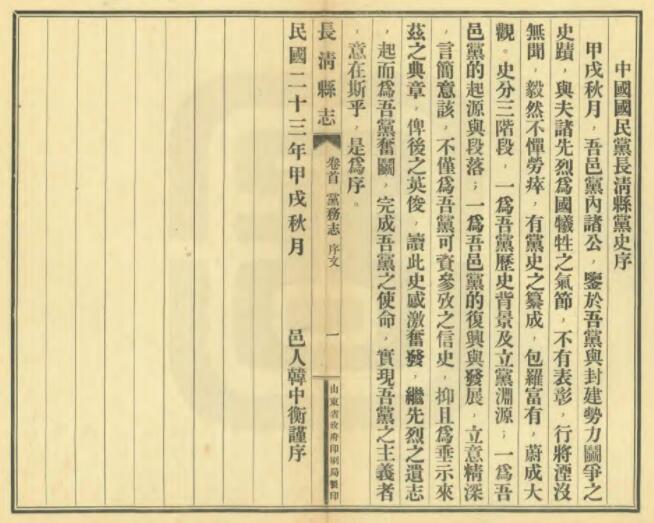 中國國民黨長清縣黨史序
甲戌秋月，吾邑黨內諸公，鑒於吾黨與封建勢力鬭爭之
史蹟，與夫諸先烈爲國犧牲之氣節，不有表彰，行將湮沒
無聞，毅然不憚勞瘁，有黨史之纂成，包羅富有，蔚成大
觀。史分三階段，一爲吾黨歷史背景及立黨淵源；一爲吾
邑黨的起源與段落；一爲吾邑黨的復興與發展，立意精深
，言簡意該，不僅爲吾黨可資參攷之信史，抑且爲垂示來
茲之典章，俾後之英俊，讀此史感激奮發，繼先烈之遺志
，起而爲吾黨奮鬭，完成吾黨之使命，實現吾黨之主義者
，意在斯乎，是爲序。
長清縣志 卷首 黨務志 序文 一 山東省政府印刷局製印
民國二十三年甲戌秋月 邑人韓中衡謹序